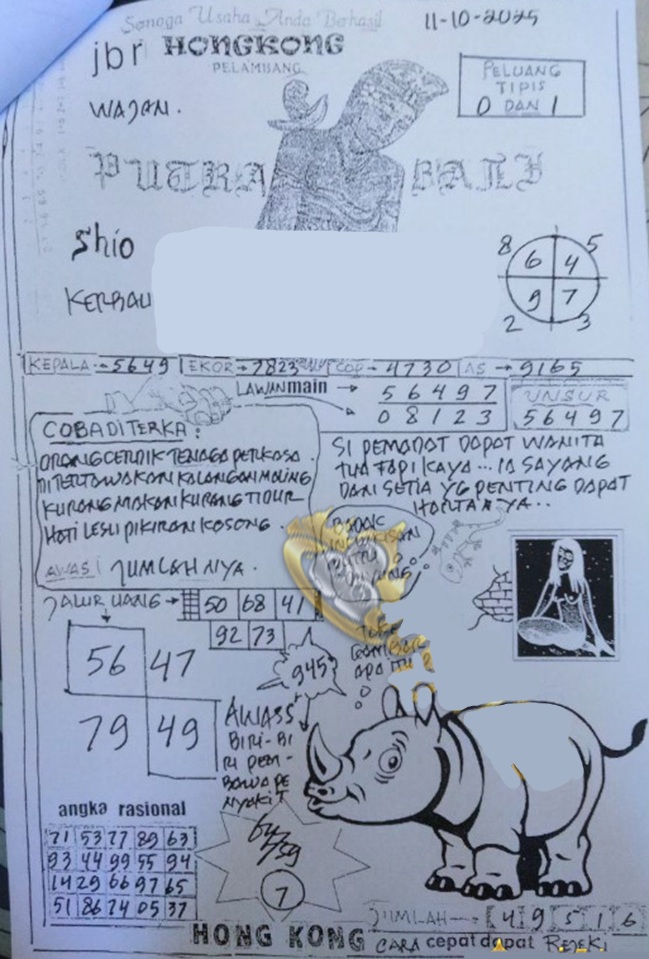 Semoga Usaha Anda Berhasil
11-10-2025
jbr HONGKONG
PELAMBANG
PELUANG
TIPIS
0 DAN 1
WAJAN.
PUTRA BALI
Shio
KERBAU
8 5
6 4
9 7
2 3
KEPALA → 5649 EKOR → 7823 COP → 4730 AS → 9165
LAWAN main → 56497
08123
UNSUR
56497
COBA DITERKA:
ORANG CERDIK TENAGA PERKASA.
DITERTAWAKAN KALANGAN MALING
KURANG MAKAN KURANG TIDUR
HATI LESU PIKIRAN KOSONG.
AWAS! JUMLAHNYA.
SI PEMADAT DAPAT WANITA
TUA TAPI KAYA... IA SAYANG
DAN SETIA YG PENTING DAPAT
HARTANYA..
BADAK
JALUR UANG → 50 68 41
92 73
56 47
79 49
945
TOKE
GAMBAR
APA ITU?
AWASS
BIRI-BI
RI PEM-
BAWA PE
NYAKIT
64
59
7
angka rasional
71 53 77 89 63
93 44 99 55 94
14 29 66 97 65
51 86 74 05 37
JUMLAH → 4 9 5 1 6
HONG KONG CARA cepat dapat REJEKI